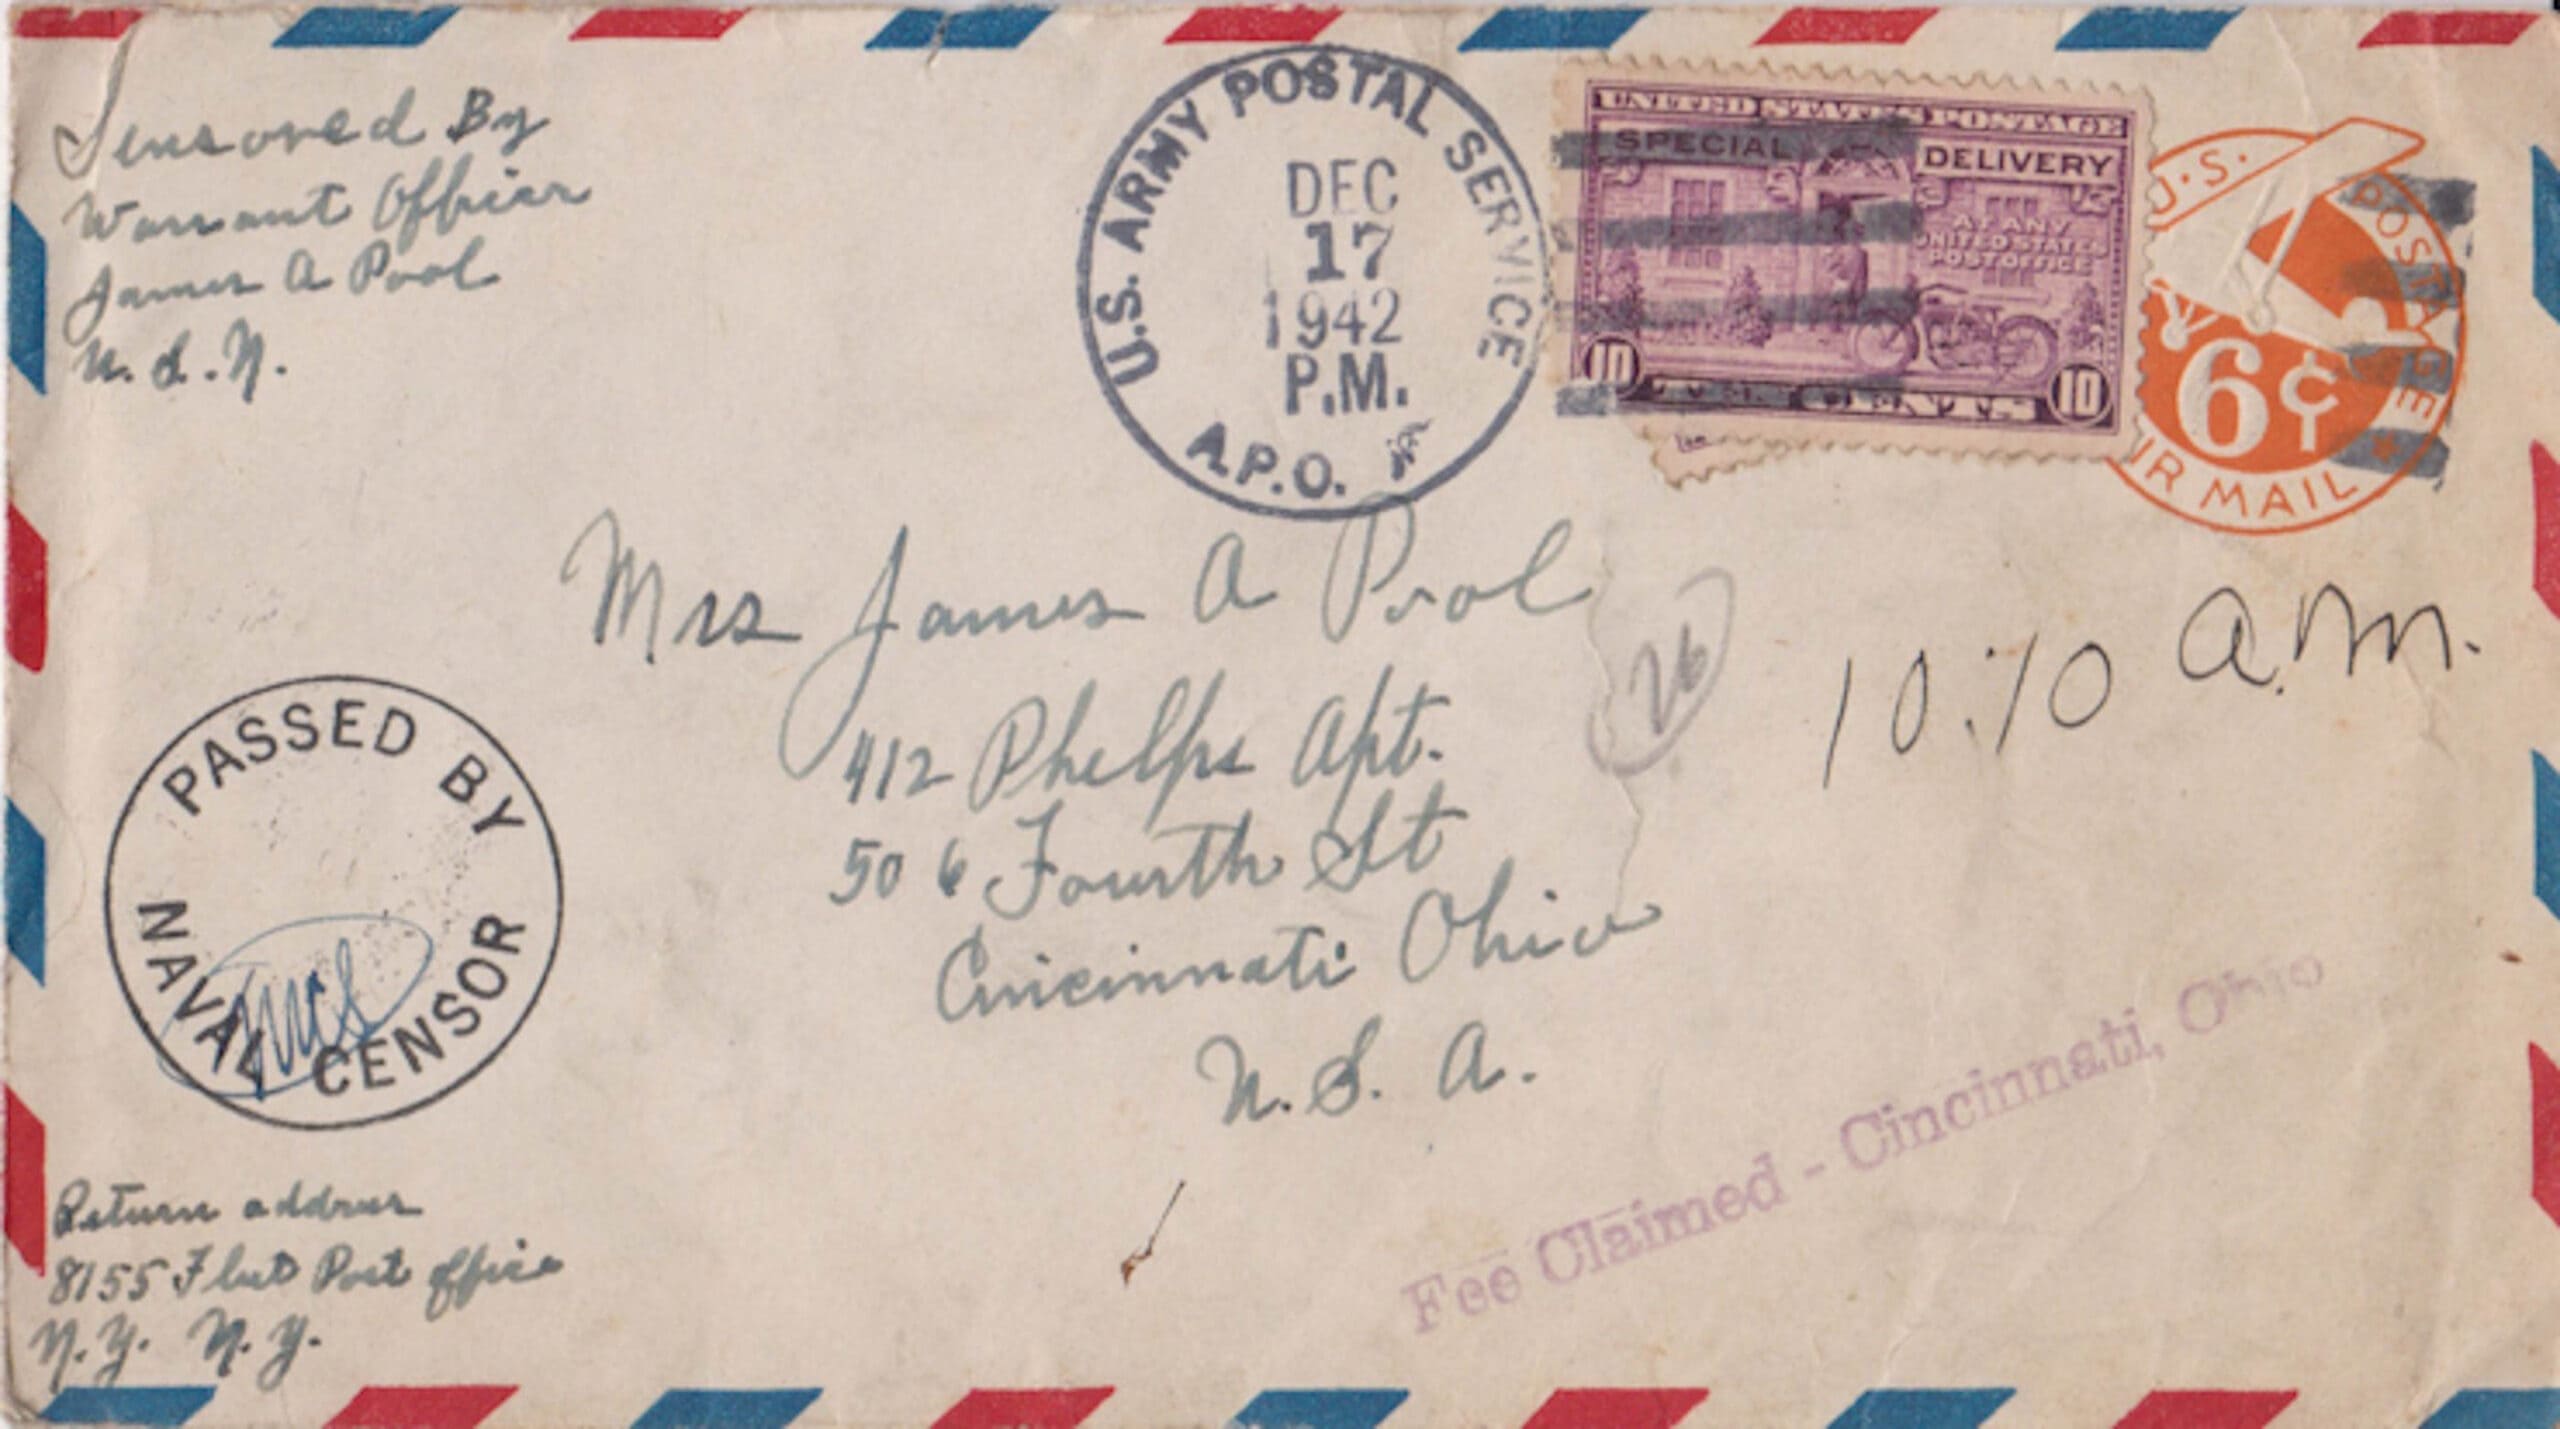 Sensored By
Warrant Officer
James A Pool
U.S.N.
U.S. ARMY POSTAL SERVICE
DEC
17
1942
P.M.
A.P.O.
UNITED STATES POSTAGE
SPECIAL DELIVERY
AT ANY
UNITED STATES
POST OFFICE
10 CENTS 10
U.S. POSTAGE
6¢
AIR MAIL
Mrs James A Pool
412 Phelps Apt.
506 Fourth St
Cincinnati Ohio
U.S.A.
26
10:10 a.m.
PASSED BY
NAVAL CENSOR
Fee Claimed - Cincinnati, Ohio
Return address
8155 Fleet Post Office
N.Y. N.Y.